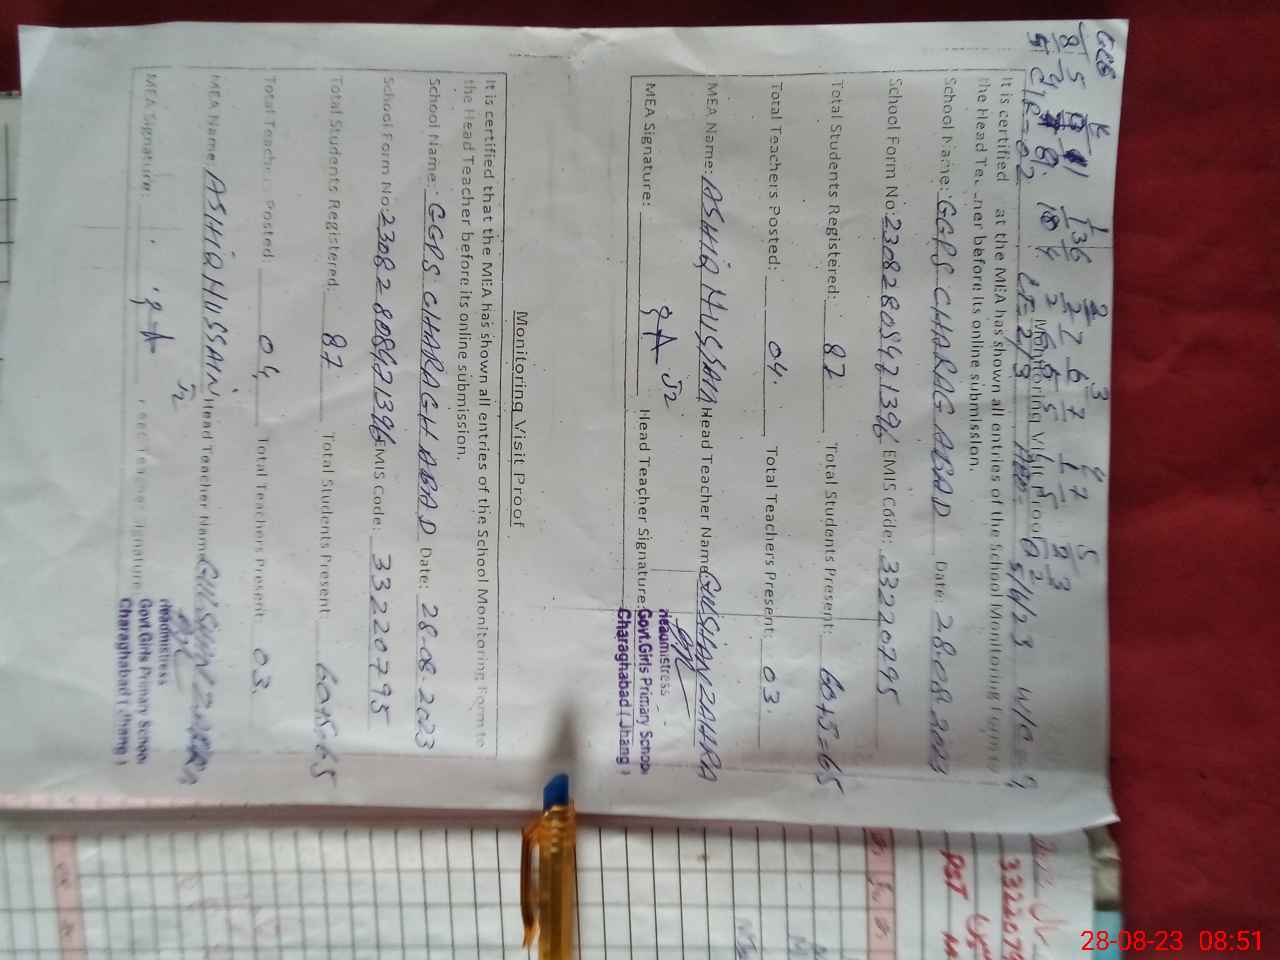 Monitoring Visit Proof
It is certified that the MEA has shown all entries of the School Monitoring Form to
the Head Teacher before its online submission.
School Name: GGPS CHARAGABAD Date: 28.08.2023
School Form No: 23082808471396 EMIS Code: 33220795
Total Students Registered: 87 Total Students Present: 60+5=65
Total Teachers Posted: 04. Total Teachers Present: 03.
MEA Name: ASHIQ HUSSAIN Head Teacher Name: GULSHAN ZAHRA
MEA Signature: Head Teacher Signature:
Headmistress
Govt.Girls Primary School
Charaghabad ( Jhang )
Monitoring Visit Proof
It is certified that the MEA has shown all entries of the School Monitoring Form to
the Head Teacher before its online submission.
School Name: GGPS CHARAGH ABAD Date: 28-08-2023
School Form No: 23082808471396 EMIS Code: 33220795
Total Students Registered: 87 Total Students Present: 60+5=65
Total Teachers Posted: 04 Total Teachers Present: 03.
MEA Name: ASHIQ HUSSAIN Head Teacher Name: GULSHAN ZAHRA
MEA Signature: Head Teacher Signature
Headmistress
Govt.Girls Primary School
Charaghabad ( Jhang )
PST
28-08-23 08:51